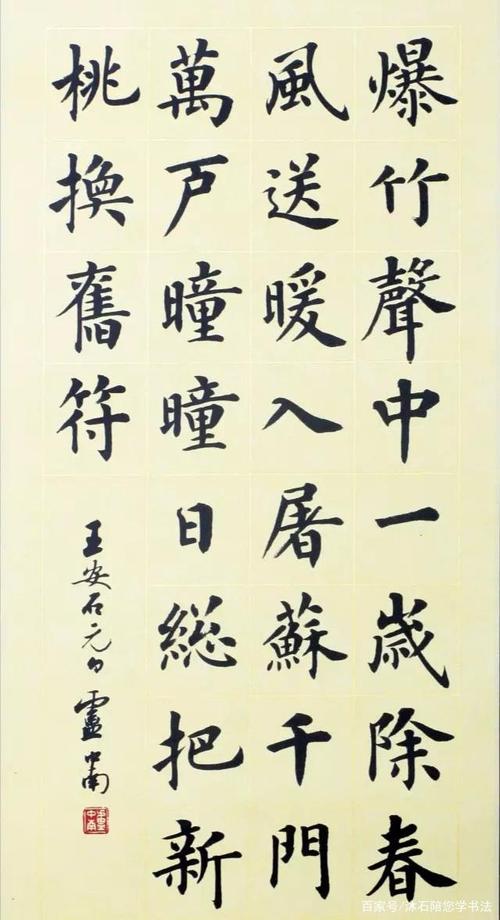 爆竹聲中一歲除春
風送暖入屠蘇千門
萬戸曈曈日総把新
桃換舊符
王安石元日 盧中南
百家号/沐石陪您学书法